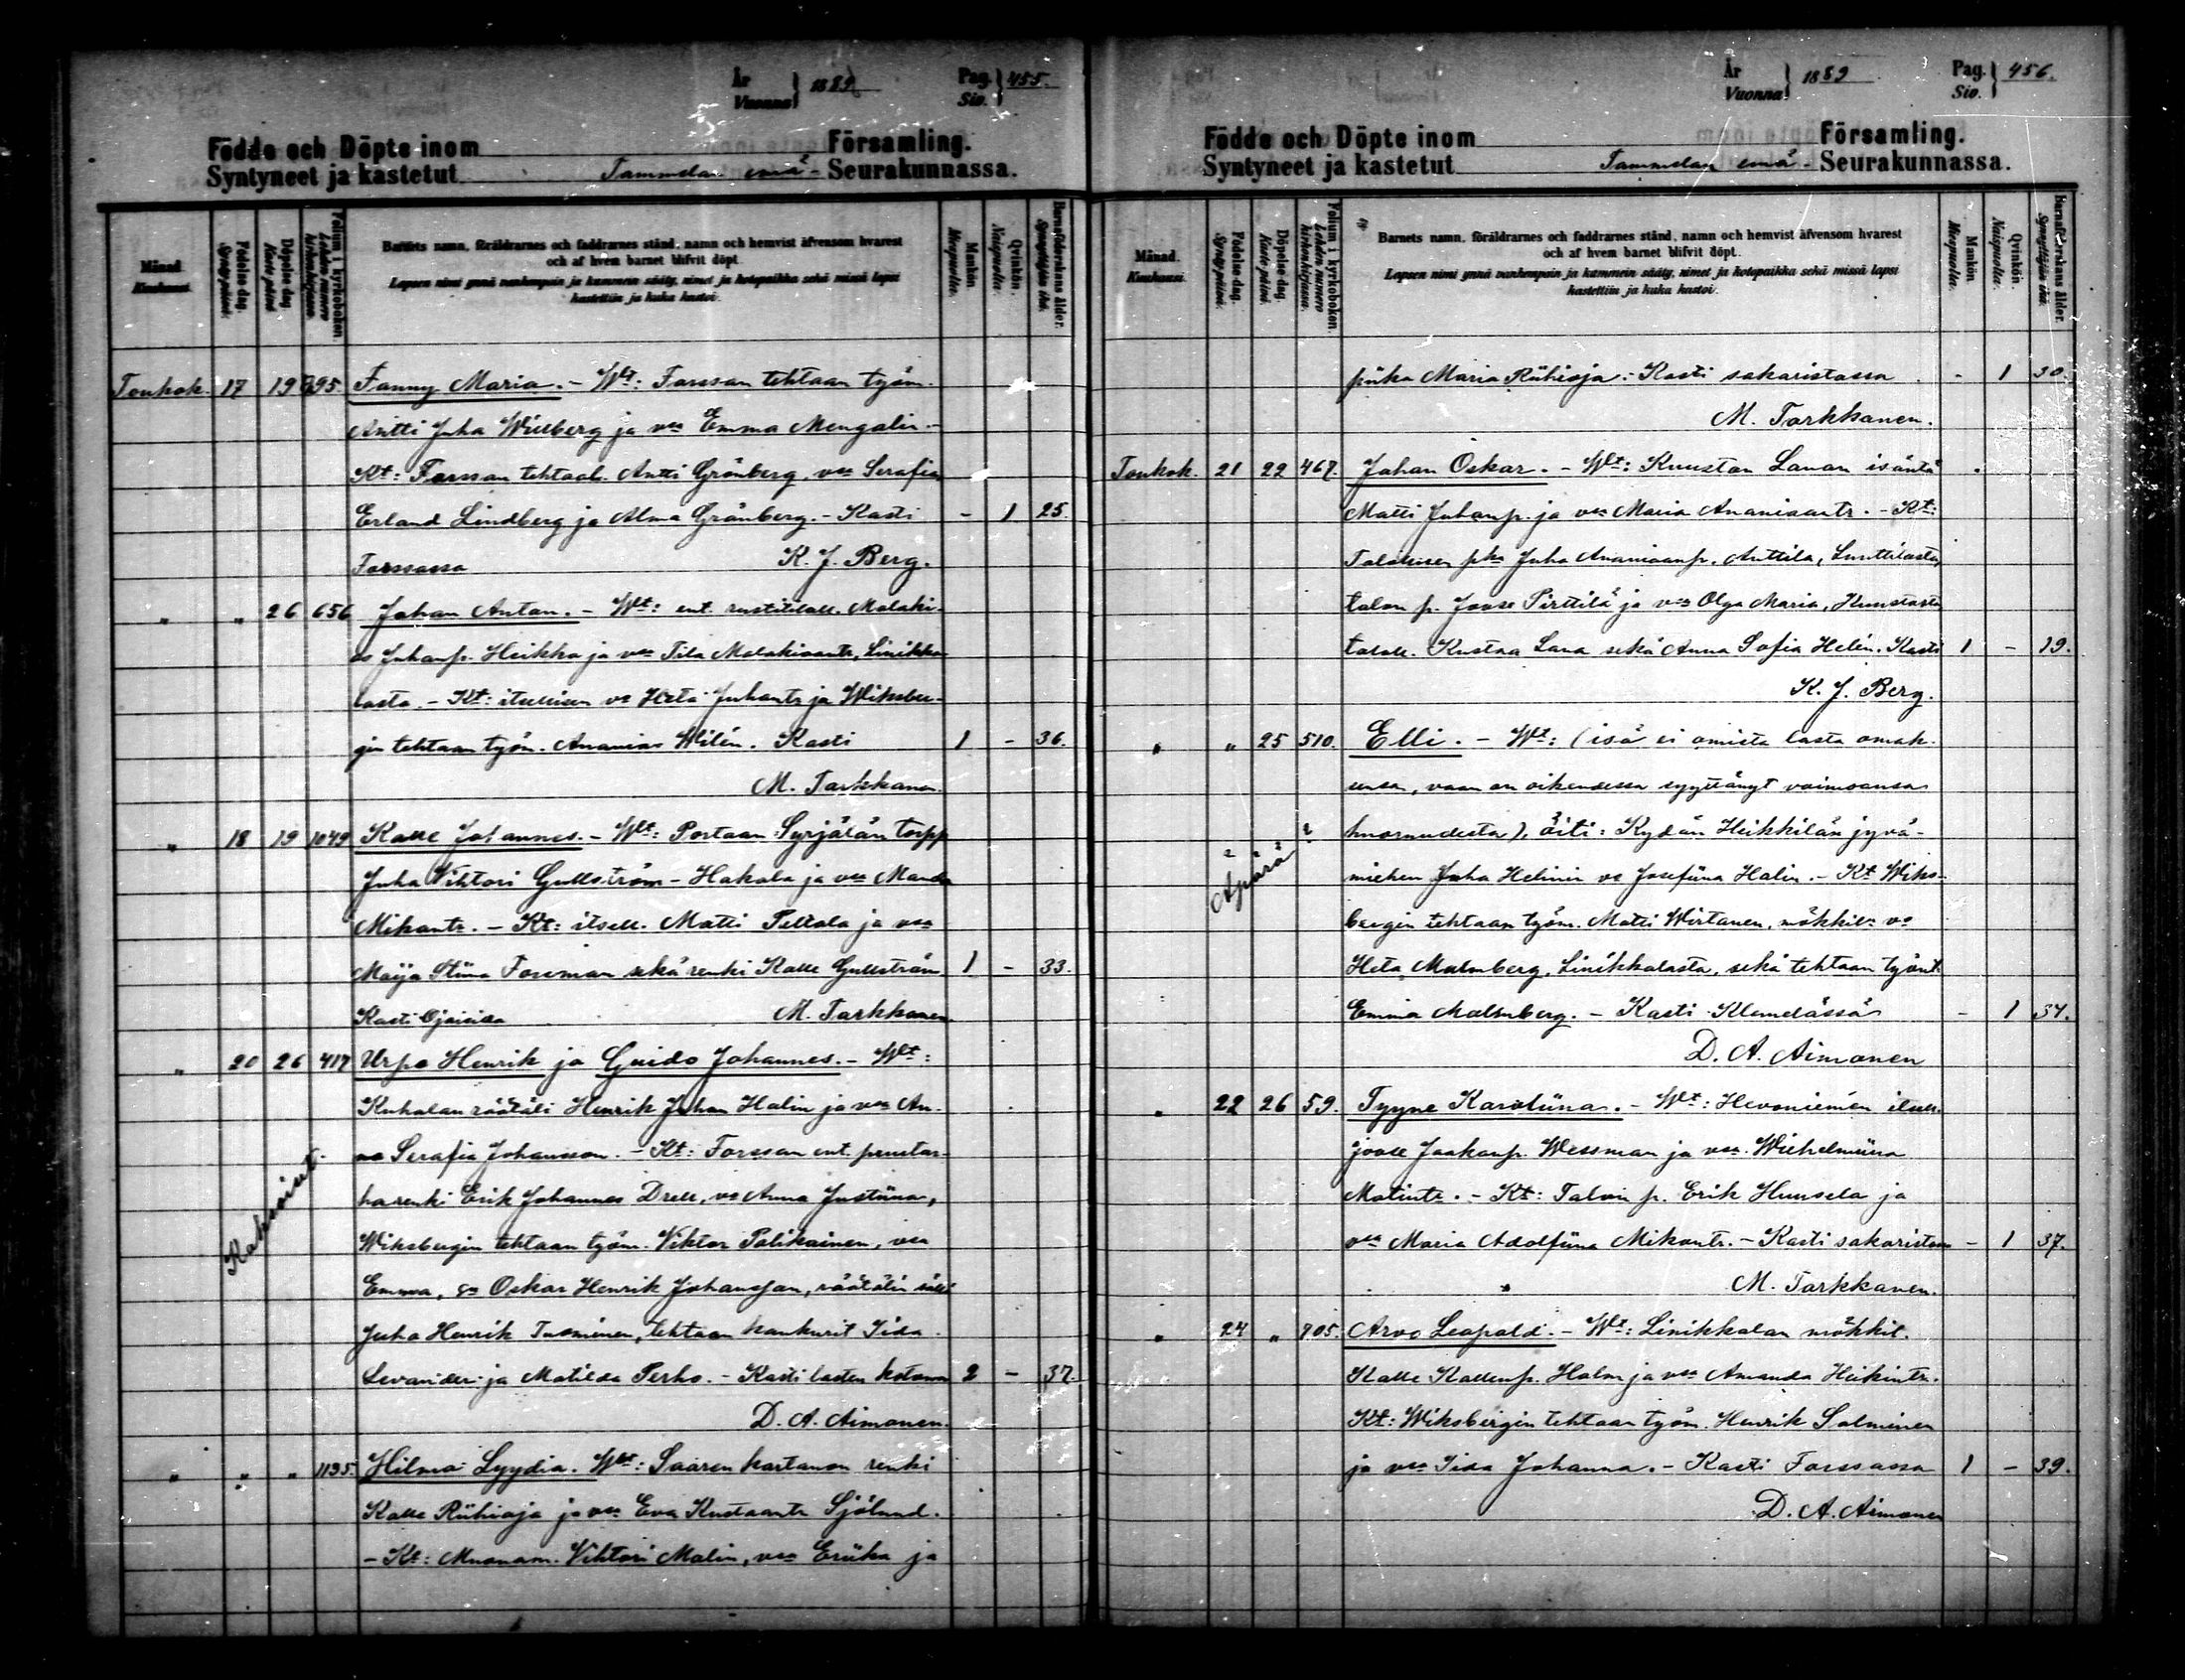 År Vuonna } 1889 Pag. Siv. } 455.
Födde och Döpte inom Församling.
Syntyneet ja kastetut Tammelan emä- Seurakunnassa.
Månad. Kuukausi.
Födelse dag. Syntymä päivä.
Döpelse dag. Kaste päivä.
Folium i kyrkoboken. Lehden numero kirkonkirjassa.
Barnets namn, föräldrarnes och faddrarnes stånd, namn och hemvist äfvensom hvarest
och af hvem barnet blifvit döpt.
Lapsen nimi ynnä vanhempain ja kummein sääty, nimet ja kotopaikka sekä missä lapsi
kastettiin ja kuka kastoi.
Mankön. Miespuolta.
Qvinkön. Naispuolta.
Barnaföderskans ålder. Synnyttäjän ikä.
Toukok. 17 19 695 Fanny Maria. - Wt: Forssan tehtaan työm.
Antti Juha Willberg ja vaa Emma Mengalin. -
Kt: Forssan tehtaal. Antti Grönberg, vaa Serafia
Erland Lindberg ja Alma Grönberg. - Kasti - 1 25.
Forssassa K. J. Berg.
" " 26 656 Johan Anton. - Wt: ent. rustitilall. Malaki-
as Juhanp. Heikka ja vaa Tila Malakiaantr, Linikka-
lasta. - Kt: itsellisen va Heta Juhantr ja Wiksber-
gin tehtaan työm. Ananias Wilén. Kasti 1 - 36.
M. Tarkkanen.
" 18 19 1049 Kalle Johannes. - Wt: Portaan Syrjälän torpp
Juha Vihtori Gullström - Hakala ja vaa Manda
Mikontr. - Kt: itsell. Matti Peltola ja vaa
Maija Stiina Forsman sekä renki Kalle Gullström 1 - 33.
Kasti Ojaisida M. Tarkkanen.
" 20 26 417 Urpo Henrik ja Guido Johannes. - Wt:
Kuhalan räätäli Henrik Johan Halin ja vaa An-
na Serafia Johansson. - Kt: Forssan ent. puutar-
Kaksoiset.
harenki Erik Johannes Drell, va Anna Justiina,
Wiksbergin tehtaan työm. Viktor Palikainen, vaa
Emma, Oskar Henrik Johansson, räätälin sälli
Juha Henrik Tuominen, tehtaan kankurit Iida
Levander ja Matilda Perho. - Kasti lasten kotona 2 - 37.
D. A. Aimonen.
" " " 1195. Hilma Lyydia. Wt: Saaren kartanon renki
Kalle Riihioja ja vaa Eva Kustaantr Sjölund.
- Kt: Muonam. Vihtori Malin, vaa Eriika ja
År Vuonna } 1889 Pag. Siv. } 456.
Födde och Döpte inom Församling.
Syntyneet ja kastetut Tammelan emä- Seurakunnassa.
Månad. Kuukausi.
Födelse dag. Syntymä päivä.
Döpelse dag. Kaste päivä.
Folium i kyrkoboken. Lehden numero kirkonkirjassa.
Barnets namn, föräldrarnes och faddrarnes stånd, namn och hemvist äfvensom hvarest
och af hvem barnet blifvit döpt.
Lapsen nimi ynnä vanhempain ja kummein sääty, nimet ja kotopaikka sekä missä lapsi
kastettiin ja kuka kastoi.
Mankön. Miespuolta.
Qvinkön. Naispuolta.
Barnaföderskans ålder. Synnyttäjän ikä.
piika Maria Riihioja. - Kasti sakaristossa - 1 30.
M. Tarkkanen.
Toukok. 21 22 467. Johan Oskar. - Wt: Kuuston Lanan isäntä
Matti Juhanp. ja vaa Maria Ananiaantr. - Kt:
Talollisen pka Juha Ananiaanp. Anttila, Lunttilasta,
talon p. Joose Pirttilä ja vaa Olga Maria, Kuustosta
taloll. Kustaa Lana sekä Anna Sofia Helén. Kasti 1 - 19.
K. J. Berg.
" " 25 510. Elli. - Wt: (isä ei omista lasta omak-
sensa, vaan on oikeudessa syyttänyt vaimoansa
huoruudesta), äiti: Kydän Heikkilän jyvä-
Äpärä
miehen Juha Helinin va Josefiina Halin. - Kt Wiks-
bergin tehtaan työm. Matti Wirtanen, mökkil. va
Heta Malmberg, Linikkalasta, sekä tehtaan työnt.
Emma Malmberg. - Kasti Klemelässä - 1 34.
D. A. Aimonen
" 22 26 59. Tyyne Karoliina. - Wt: Hevoniemen itsell.
Joose Jaakonp. Wessman ja vaa Wilhelmiina
Matintr. - Kt: Talon p. Erik Huusela ja
vaa Maria Adolfiina Mikontr. - Kasti sakaristossa - 1 37.
M. Tarkkanen.
" 24 " 705. Arvo Leopold. - Wt: Linikkalan mökkil.
Kalle Kallenp. Holm ja vaa Amanda Heikintr.
Kt: Wiksbergin tehtaan työm. Henrik Salminen
ja vaa Iida Johanna. - Kasti Forssassa 1 - 39.
D. A. Aimonen